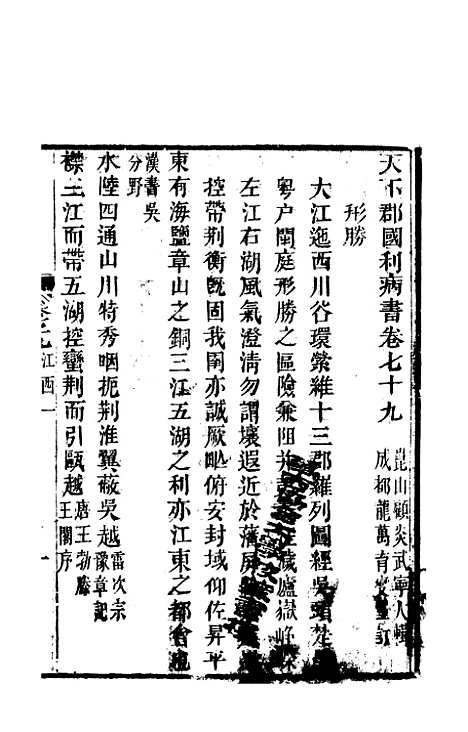 天下郡國利病書卷七十九
崑山顧炎武寧人輯
成都龍萬育 訂
形勝
大江迤西川谷環縈維十三郡羅列圖經吳頭楚
粵户閩庭形勝之區險兼阻 藏廬嶽峙
左江右湖風氣澄清勿謂壤遐近於藩屏
控帶荆衡旣固我圉亦誠厥 俯安封域仰佐昇平
東有海鹽章山之銅三江五湖之利亦江東之都會也
漢書吳
分野
水陸四通山川特秀咽扼荆淮翼蔽吳越雷次宗
豫章記
襟三江而帶五湖控蠻荆而引甌越唐王勃滕
王閣序
卷七十九江西一
一